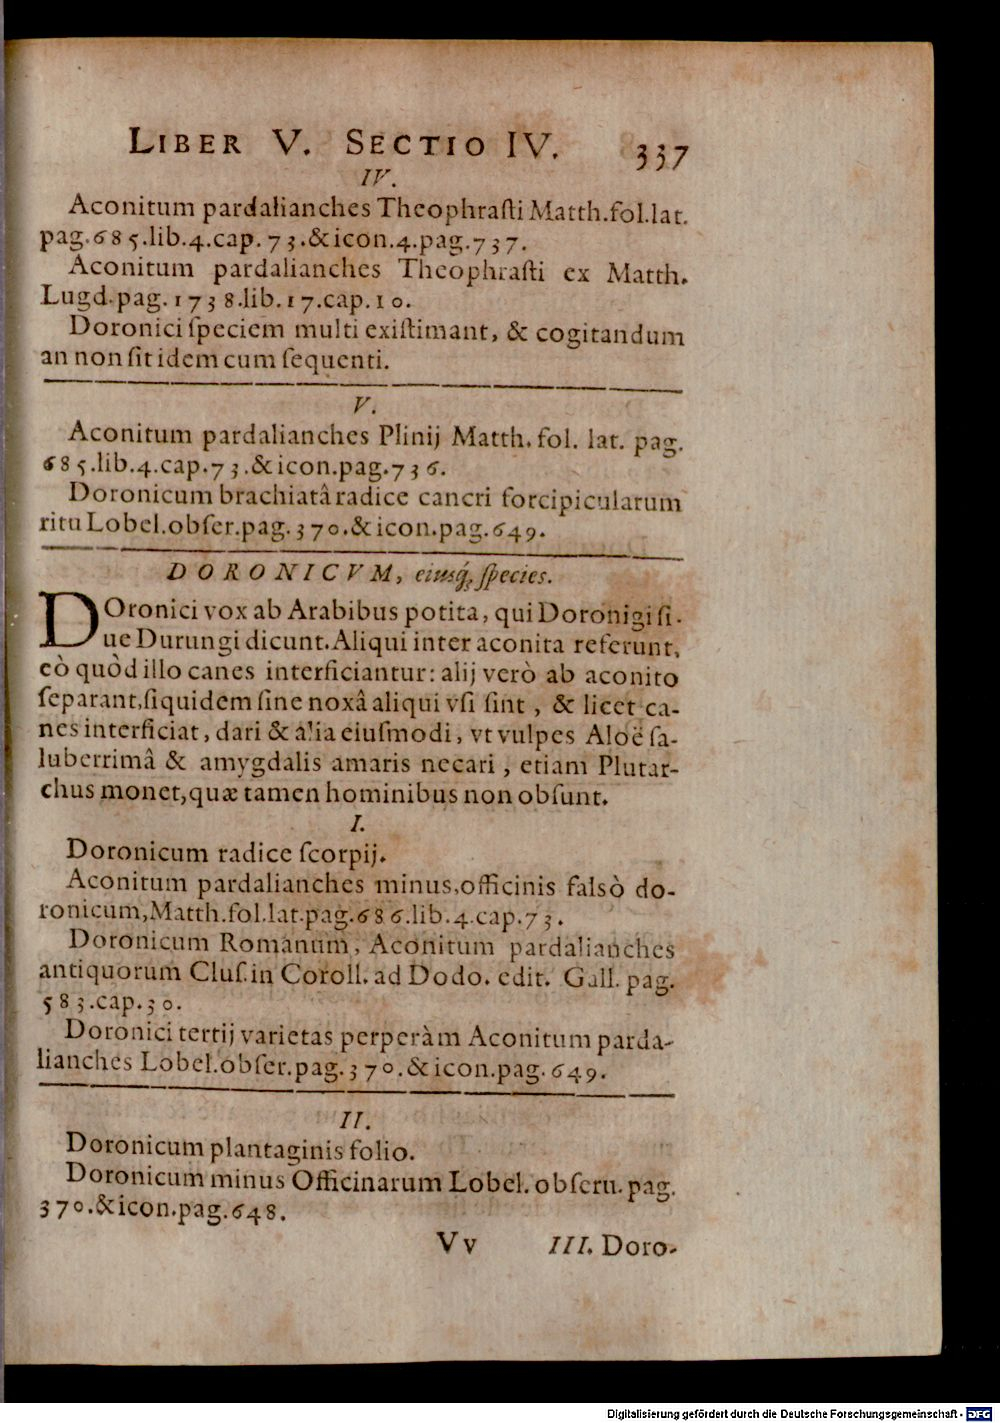 LIBER V. SECTIO IV. 337
IV.
Aconitum pardalianches Theophraſti Matth.fol.lat.
pag.685.lib.4.cap.73.&icon.4.pag.737.
Aconitum pardalianches Theophraſti ex Matth.
Lugd.pag.1738.lib.17.cap.10.
Doronici ſpeciem multi exiſtimant, & cogitandum
an non ſit idem cum ſequenti.
V.
Aconitum pardalianches Plinij Matth.fol. lat. pag.
685.lib.4.cap.73.&icon.pag.736.
Doronicum brachiatâ radice cancri forcipicularum
ritu Lobel.obſer.pag.370.&icon.pag.649.
DORONICVM, eiusq́; ſpecies.
DOronici vox ab Arabibus potita, qui Doronigi ſi-
ue Durungi dicunt.Aliqui inter aconita referunt,
eò quòd illo canes interficiantur: alij verò ab aconito
ſeparant,ſiquidem ſine noxâ aliqui vſi ſint, & licet ca-
nes interficiat, dari & alia eiuſmodi, vt vulpes Aloë ſa-
luberrimâ & amygdalis amaris necari, etiam Plutar-
chus monet,quæ tamen hominibus non obſunt.
I.
Doronicum radice ſcorpij.
Aconitum pardalianches minus,officinis falsò do-
ronicum,Matth.fol.lat.pag.686.lib.4.cap.73.
Doronicum Romanum, Aconitum pardalianches
antiquorum Cluſ.in Coroll. ad Dodo. edit. Gall. pag.
583.cap.30.
Doronici tertij varietas perperàm Aconitum parda-
lianches Lobel.obſer.pag.370.&icon.pag.649.
II.
Doronicum plantaginis folio.
Doronicum minus Officinarum Lobel.obſeru.pag.
370.&icon.pag.648.
Vv III. Doro-
Digitalisierung gefördert durch die Deutsche Forschungsgemeinschaft - DFG